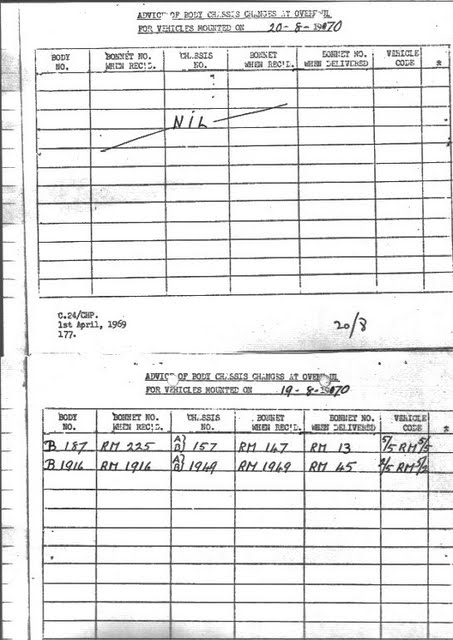 ADVICE OF BODY CHASSIS CHANGES AT OVERHAUL
FOR VEHICLES MOUNTED ON 20-8-1970
BODY NO. BONNET NO. WHEN REC'D. CHASSIS NO. BONNET WHEN REC'D. BONNET NO. WHEN DELIVERED VEHICLE CODE *
NIL
C.24/CHP.
1st April, 1969
177.
20/8
ADVICE OF BODY CHASSIS CHANGES AT OVERHAUL
FOR VEHICLES MOUNTED ON 19-8-1970
BODY NO. BONNET NO. WHEN REC'D. CHASSIS NO. BONNET WHEN REC'D. BONNET NO. WHEN DELIVERED VEHICLE CODE *
B 187 RM 225 A/B} 157 RM 147 RM 13 5/5 RM 5/5
B 1914 RM 1914 A/B} 1949 RM 1949 RM 45 2/5 RM 5/2